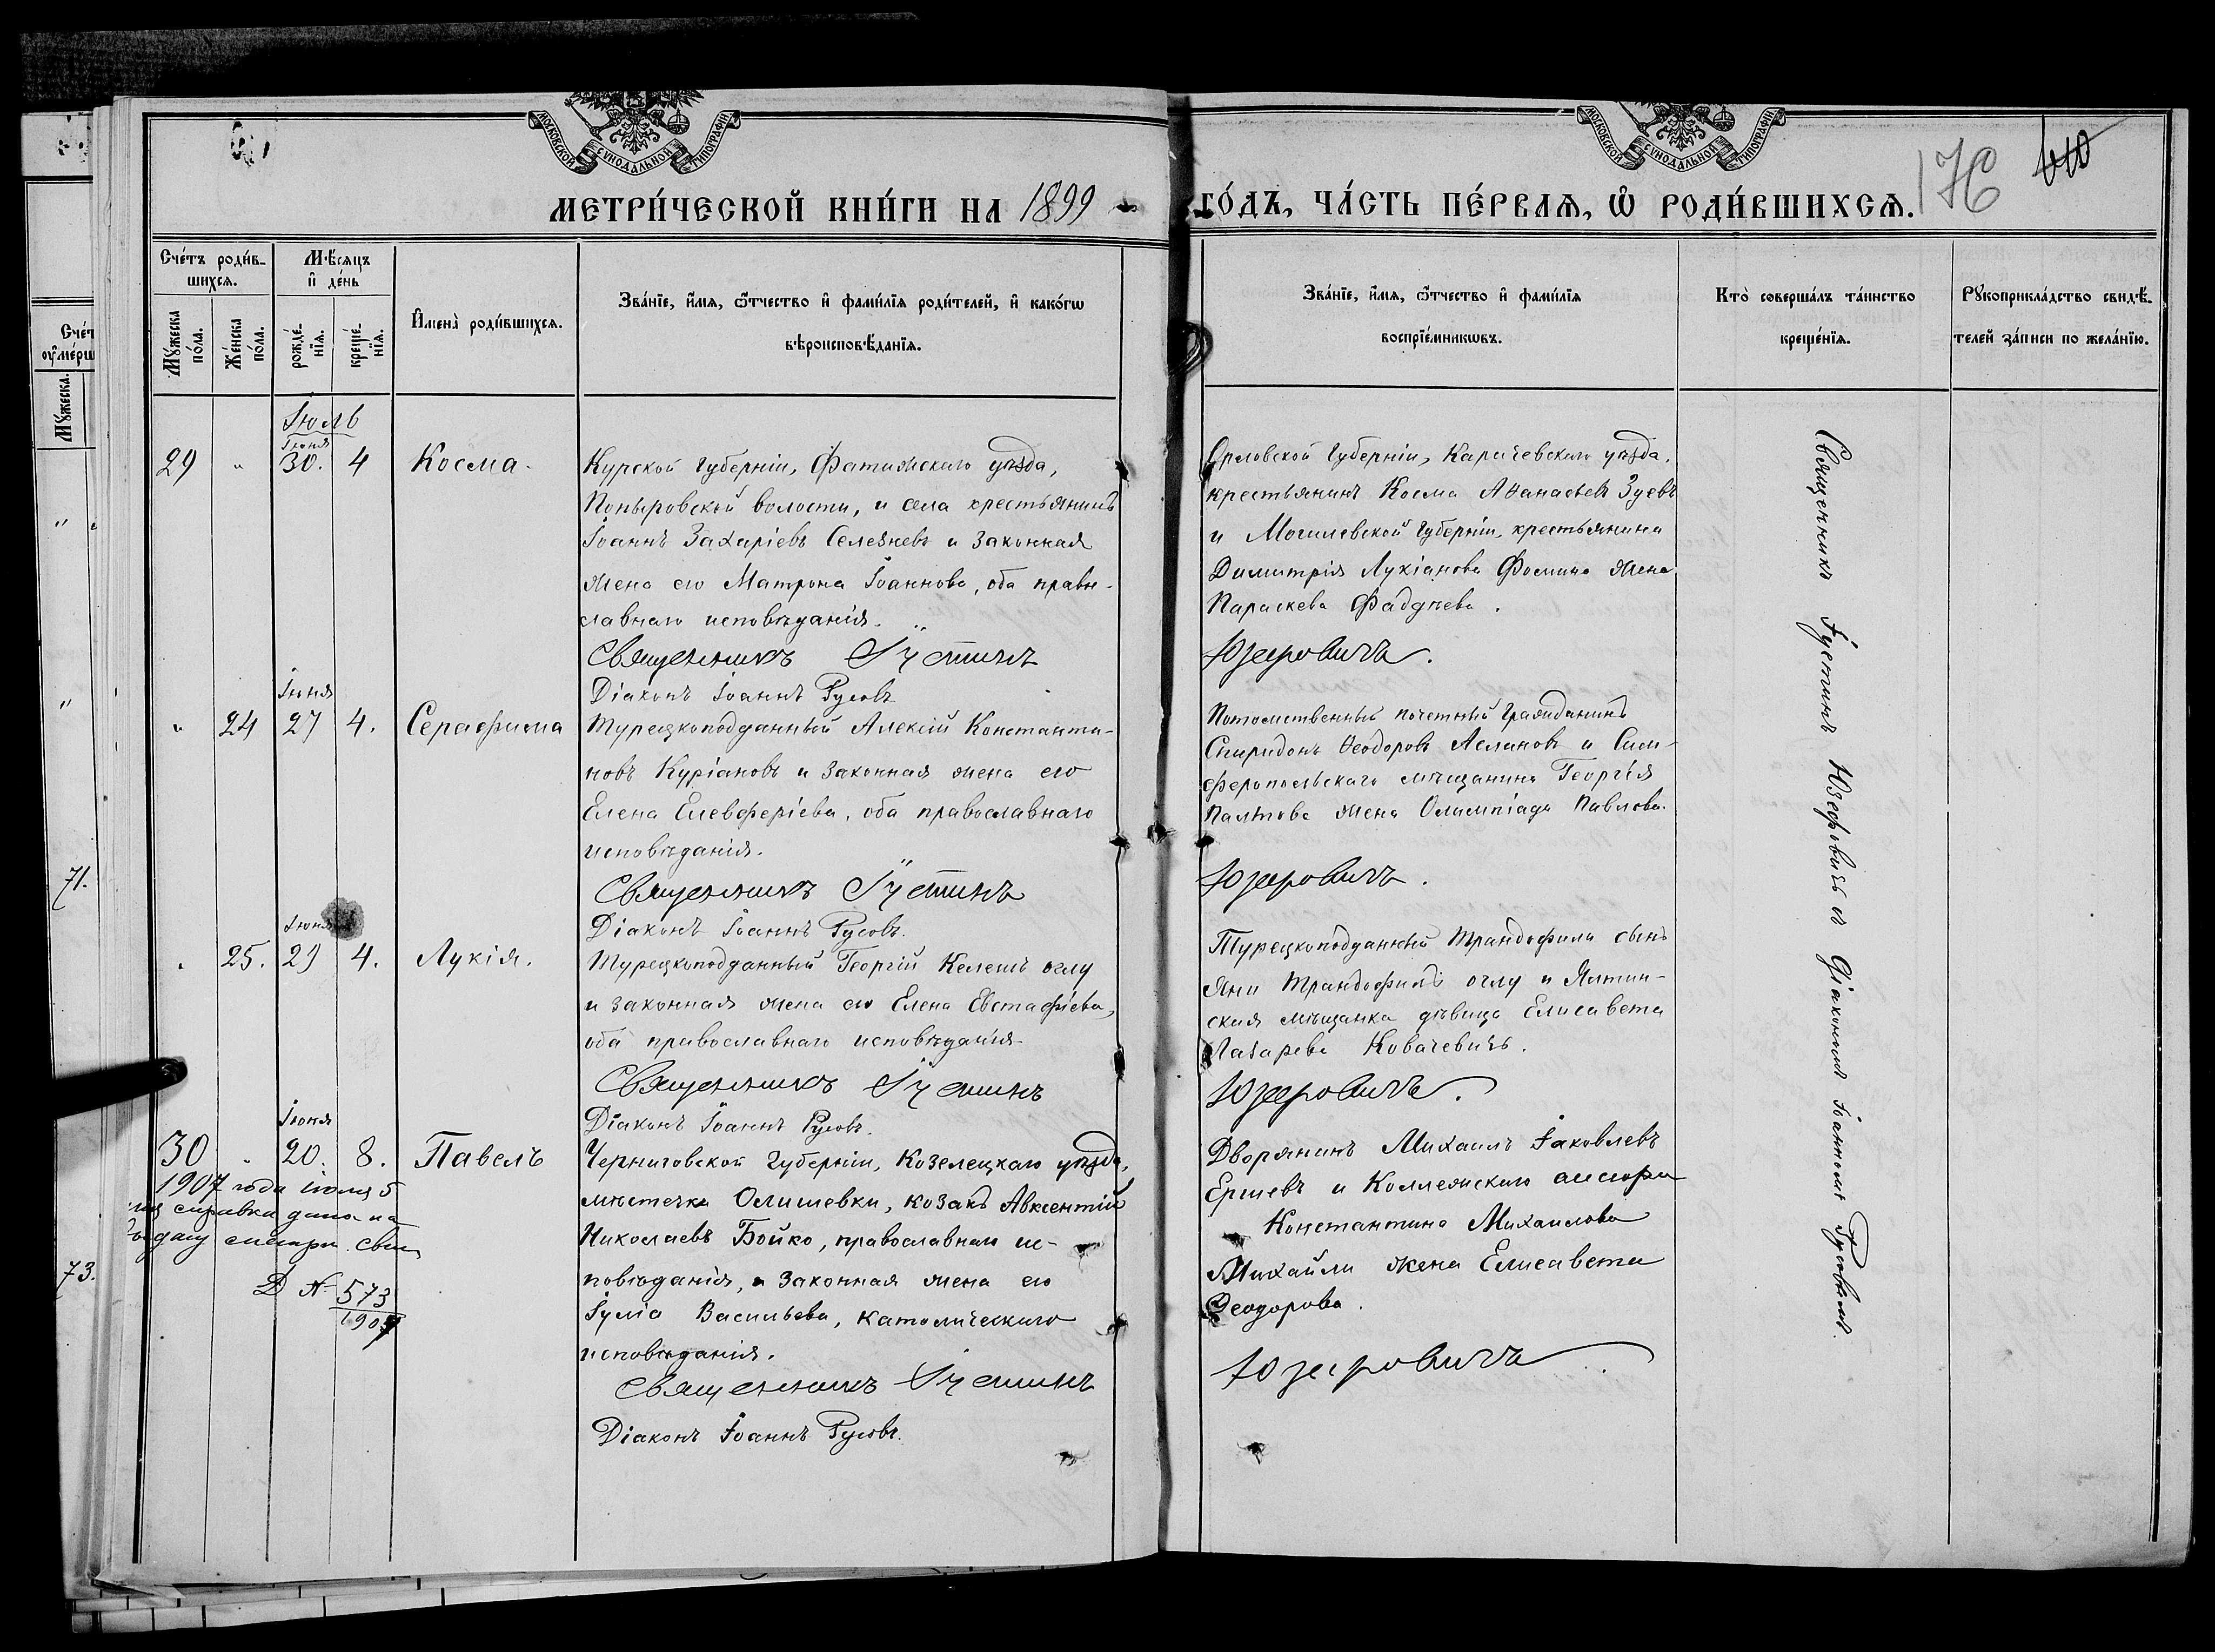 МОСКОВСКОЙ СѴНОДАЛЬНОЙ ТИПОГРАФІИ
МОСКОВСКОЙ СѴНОДАЛЬНОЙ ТИПОГРАФІИ
МЕТРИ́ЧЕСКОЙ КНИ́ГИ НА 1899 ГО́ДЪ, ЧА́СТЬ ПЕ́РВАѦ, Ѡ҆ РОДИ́ВШИХСѦ.
Сче́тъ роди́в-
шихсѧ.
Мꙋ́жеска по́ла.
Же́нска по́ла.
Мѣ́сѧцъ
и҆ де́нь
рожде́-
нїѧ.
креще́-
нїѧ.
И҆мена̀ роди́вшихсѧ.
Зва́нїе, и҆́мѧ, ѻ҆́тчество и҆ фами́лїѧ роди́телей, и҆ како́гѡ
вѣроисповѣ́данїѧ.
Зва́нїе, и҆́мѧ, ѻ҆́тчество и҆ фами́лїѧ
воспрїе́мникѡвъ.
Кто̀ соверша́лъ та́инство
креще́нїѧ.
Рꙋкоприкла́дство свидѣ́-
телей за́писи по жела́нїю.
Іюль
Іюня
29 " 30. 4 Косма.
Курской губерніи, Фатижскаго уѣзда,
Поныровской волости, и села крестьянинъ
Іоаннъ Захаріевъ Селезневъ и законная
жена его Матрона Іоаннова, оба право-
славнаго исповѣданія.
Священникъ Іустинъ
Діаконъ Іоаннъ Русовъ
Орловской губерніи, Карачевскаго уѣзда,
крестьянинъ Косма Аѳанасьевъ Зуевъ
и Могилевской губерніи, крестьянина
Димитрія Лукіанова Фомина жена
Параскева Фаддѣева.
Юзефовичъ.
Іюня
" 24 27 4. Серафима
Турецкоподданный Алексій Константи-
новъ Куріановъ и законная жена его
Елена Елевферіева, оба православнаго
исповѣданія.
Священникъ Іустинъ
Діаконъ Іоаннъ Русовъ.
Потомственный почетный гражданинъ
Спиридонъ Ѳеодоровъ Аслановъ и Сим-
феропольскаго мѣщанина Георгія
жена Олимпіада Павлова.
Юзефовичъ.
Іюня
25. 29 4. Лукія.
Турецкоподданный Георгій Келешъ оглу
и законная жена его Елена Евстафіева,
оба православнаго исповѣданія.
Священникъ Іустинъ
Діаконъ Іоаннъ Русовъ.
Турецкоподданный Трандофилъ сынъ
Яни Трандофилъ оглу и Ялтин-
ская мѣщанка дѣвица Елисавета
Лазарева Ковачевичъ.
Юзефовичъ.
Іюня
30 " 20. 8. Павелъ
Черниговской губерніи, Козелецкаго уѣзда,
мѣстечка Олишевки, козакъ Авксентій
Николаевъ Бойко, православнаго ис-
повѣданія, и законная жена его
Іулія Васильева, католическаго
исповѣданія.
Священникъ Іустинъ
Діаконъ Іоаннъ Русовъ.
Дворянинъ Михаилъ Іаковлевъ
Ершевъ и Коллежскаго
Константина Михаилова
Михайли жена Елисавета
Ѳеодорова.
Юзефовичъ
1907 года 5
справка дана на
выдачу
№ 573
1907
Священникъ Іустинъ Юзефовичъ съ діакономъ Іоанномъ Русовымъ.
Сче́т
ᲂу҆ме́рш
Мꙋ́жеска.
71.
73.